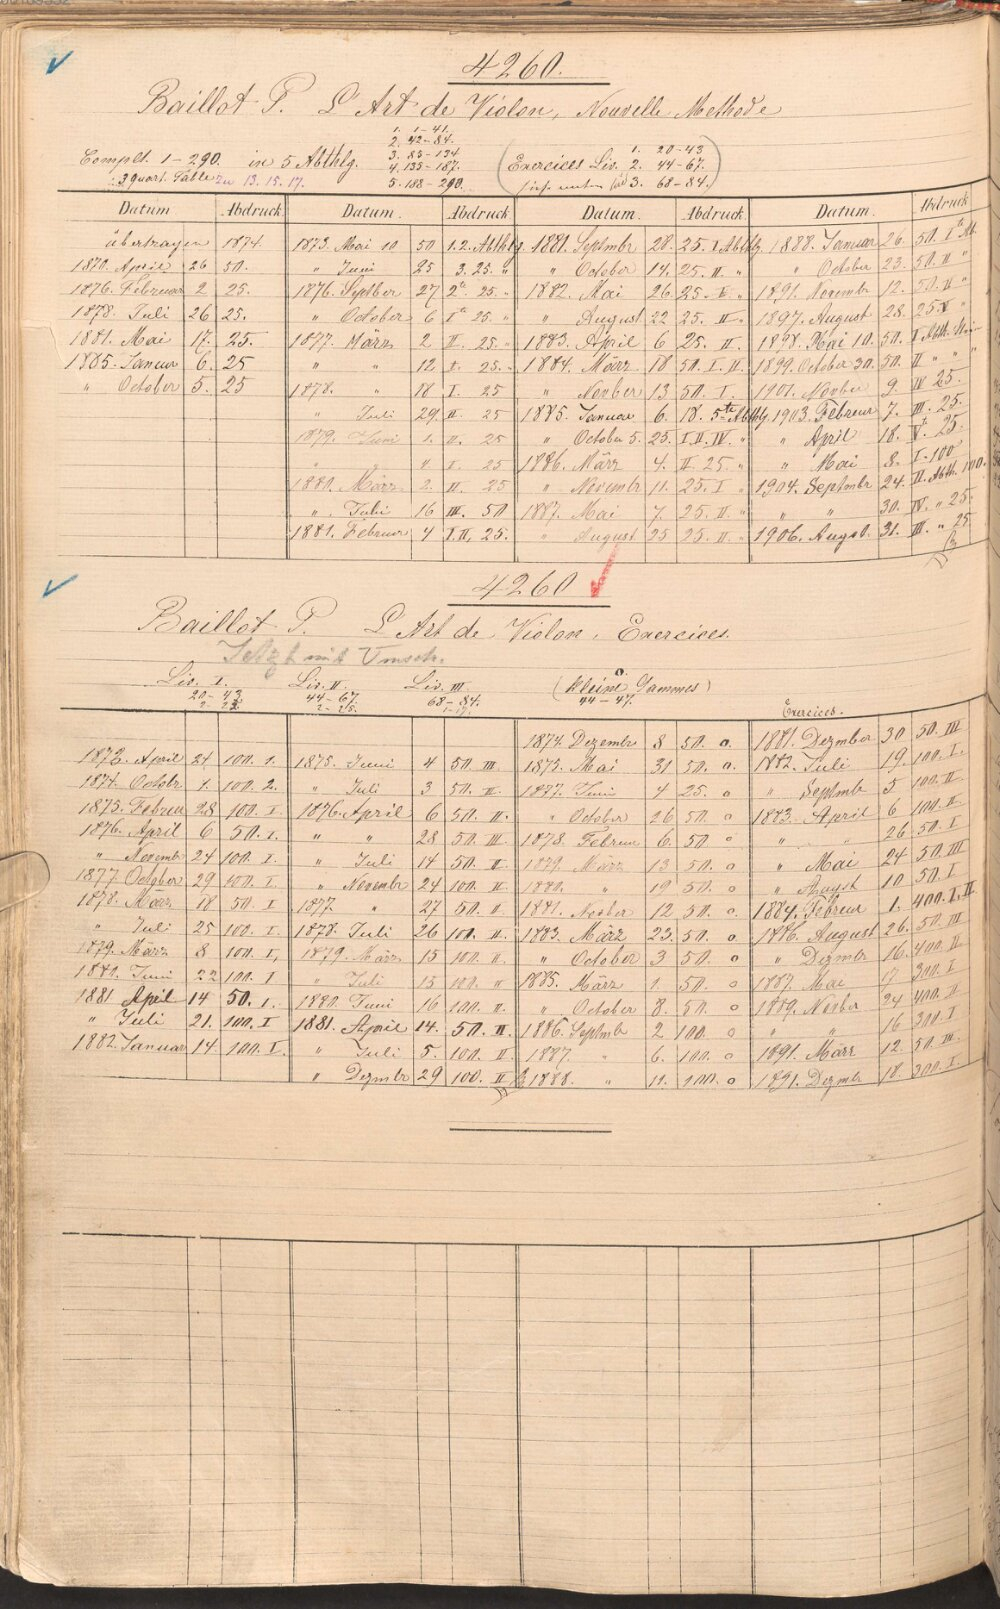 4260.
Baillot P. L'Art de Violon, Nouvelle Methode
1. 1-41.
2. 42-84.
3. 85-134
4. 135-187.
5. 188-290.
Complt. 1-290. in 5 Abthlg.
3 quart. Table zu 13. 15. 17.
(Exercices Liv. 1. 20-43
2. 44-67.
3. 68-84.)
Datum Abdruck Datum. Abdruck Datum. Abdruck Datum. Abdruck
übertragen 1874. 1873. Mai 10 50 1.2. Abthlg. 1881. Septmbr 28. 25. I. Abthlg. 1888. Januar 26. 50. I
1870. April 26 50. " Juni 25 3. 25. " " October 14. 25. II " " October 23. 50. II "
1876. Februar 2 25. 1876. Septber 27 25. " 1882. Mai 26 25. " 1891. Novembr 12. 50. II "
1878. Juli 26 25. " October 6 25. " " August 22 25. II " 1897. August 28. 25.
1881. Mai 17. 25. 1877. März 2 II. 25. " 1883. April 6 25. II " 1898. Mai 10. 50. I Abth.
1885. Januar 6. 25 " " 12 I. 25. " 1884. März 18 50. I. II. 1899. October 30. 50. II " "
" October 5. 25 1878. " 18 I. 25 " Novber 13 50. I. 1901. Novber 9. 25.
" Juli 29. II. 25 1885. Januar 6. 18. 5te Abthlg. 1903. Februar 7. III. 25.
1879. Juni 1. II. 25 " October 5. 25. I. II. IV. " " April 18. V. 25.
" " I. 25 1886. März 4. II 25. " " Mai 8. I. 100
1880. März 2. II. 25 " Novembr 11. 25. I " 1904. Septmbr 24. II. Abth. 100.
" Juli 16 III. 50 1887. Mai 7. 25. II. " " " 30. IV. " 25.
1881. Februar 4 I. II, 25. " August 25 25. II. " 1906. August. 31. III. " 25
4260
Baillot P. L'Art de Violon. Exercices.
Jetzt mit Umsch.
Liv. I. Liv. II. Liv. III. (kleine Gammes)
20-43 44-67. 68-84. 44-47. Exercices.
2-25. 1-17.
1874. Dezembr 8 50. o. 1881. Dezmber 30 50. III
1873. April 24 100. 1. 1875. Juni 4 50. III. 1875. Mai 31 50. o. 1882. Juli 19. 100. I.
1874. Octobr 1. 100. 2. " Juli 3 50. II. 1877. Juni 4 25. o " Septmbr 5 100. II
1875. Februar 28 100. I. 1876. April 6 50. II. " October 26 50. o 1883. April 6 100. II
1876. April 6 50. 1. " " 28 50. III 1878. Februar 6. 50 o " " 26 50. I
" Novembr 24 100. I. " Juli 14 50. II 1879. März 13 50. o " Mai 24 50. III
1877. October 29 100. I. " Novembr 24 100. II. 1880. " 19 50. o " August 10 50. I
1878. März 18 50. I 1877. " 27 50. II 1881. Novber 12 50. o. 1884. Februar 1. 400. I. II
" Juli 25 100. I. 1878. Juli 26 100. II. 1883. März 23. 50. o 1886. August 26. 50. III
1879. März 8 100. I, 1879. März 15 100. II. " October 3 50. o " Dezmbr 16. 400. II
1880. Juni 22 100. I " Juli 15 100. II 1885. März 1. 50. o 1887. Mai 17 300. I
1881 April 14 50. 1. 1880. Juni 16 100. II. " October 8. 50. o 1889. Novber 24 400. II
" Juli 21. 100. I 1881. April 14. 50. II 1886. Septmbr 2 100. o " " 16 300. I
1882. Januar 14. 100. I. " Juli 5. 100. II. 1887. " 6. 100. o 1891. März 12. 50. III.
" Dezmbr 29 100. II 1888. " 11. 100. o 1891. Dezmbr 18. 300. I.